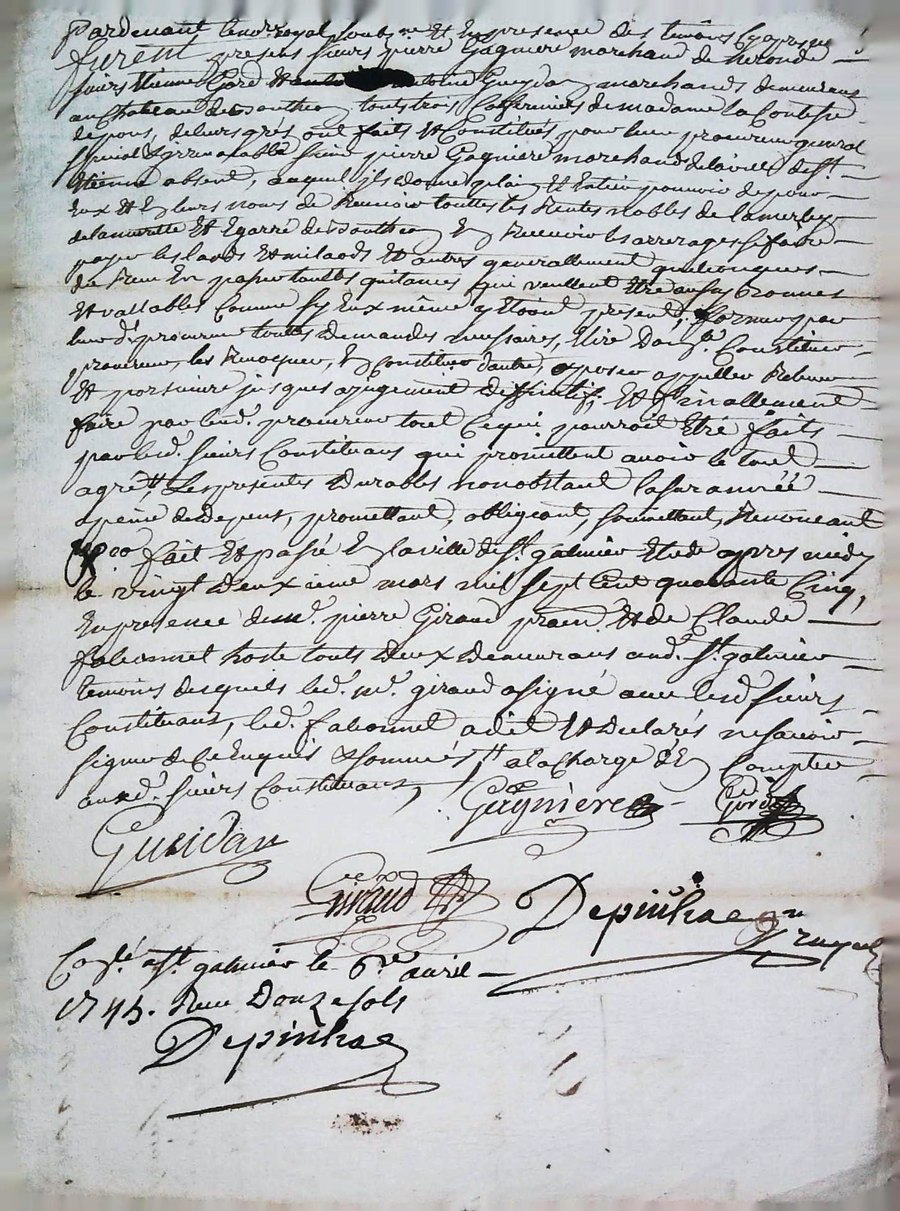 Pardevant le nore royal soubne et En presence des temoins cy apres
furent presens sieurs pierre Gagniere marchand de
sieurs Etienne Gord et Antoine Gueydan marchands demeurans
au Chateau de Bouthéon touts trois Cofermiers de madame La Contesse
de pons, de leurs grés ont faits et Constitués pour leur procureur general
special et irrevocable sieur pierre Gagniere marchand de la ville de st.
Etienne absent, auquel ils donnent plain et Entier pouvoir de pour
Eux et En leurs noms de Recevoir touttes les Rentes nobles de
de la murette Et Egarré de Bouthéon En Recevoir les arrerages se faire
payer les laods Et milaods Et autres generallement quelconques
du Receu En passer touttes quitances qui veullent Etre aussy bonnes
Et vallables Comme sy Eux même y Etoient presents, former par
leurd. procureur touttes demandes necessaires, Elire domile. Constituer
procureur, les Revoquer, En Constituer d'autre, oposer appeller
Et poursuivre jusques a jugement deffinitif, Et finallement
faire par led. procureur tout Ce qui pourroit Etre faits
par lesd. sieurs Constituans qui promettent avoir le tout
agreé, Les presentes durables nonobstant la surannée
a peine de depens, promettant, obligeant, soumettant, Renonceant
fait Et passé En la ville de st. galmier Etude apres midy
le vingt deux ieme mars mil sept Cent quarante Cinq,
En presence de me. pierre Giraud praen. et de Claude
fabonnel hoste touts deux demeurans aud. st. galmier
temoins desquels led. me. giraud a signé avec lesd. sieurs
Constituans, led. fabonnel a dit Et declarés ne scavoir
signer de Ce Enquis et sommés a la Charge d'En Compter
auxd. sieurs Constituans,
Gagniere Gord
Gueidan
Giraud Depinhac
Conlé a st. galmier le 6e. avril
1745. Receu Douze sols
Depinhac